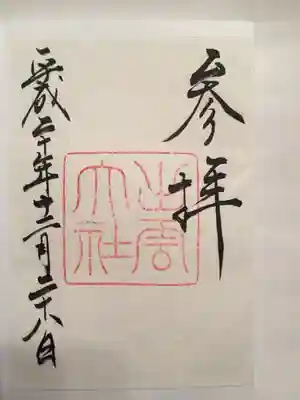 参拝
出雲
大社
平成二十年十二月二十八日